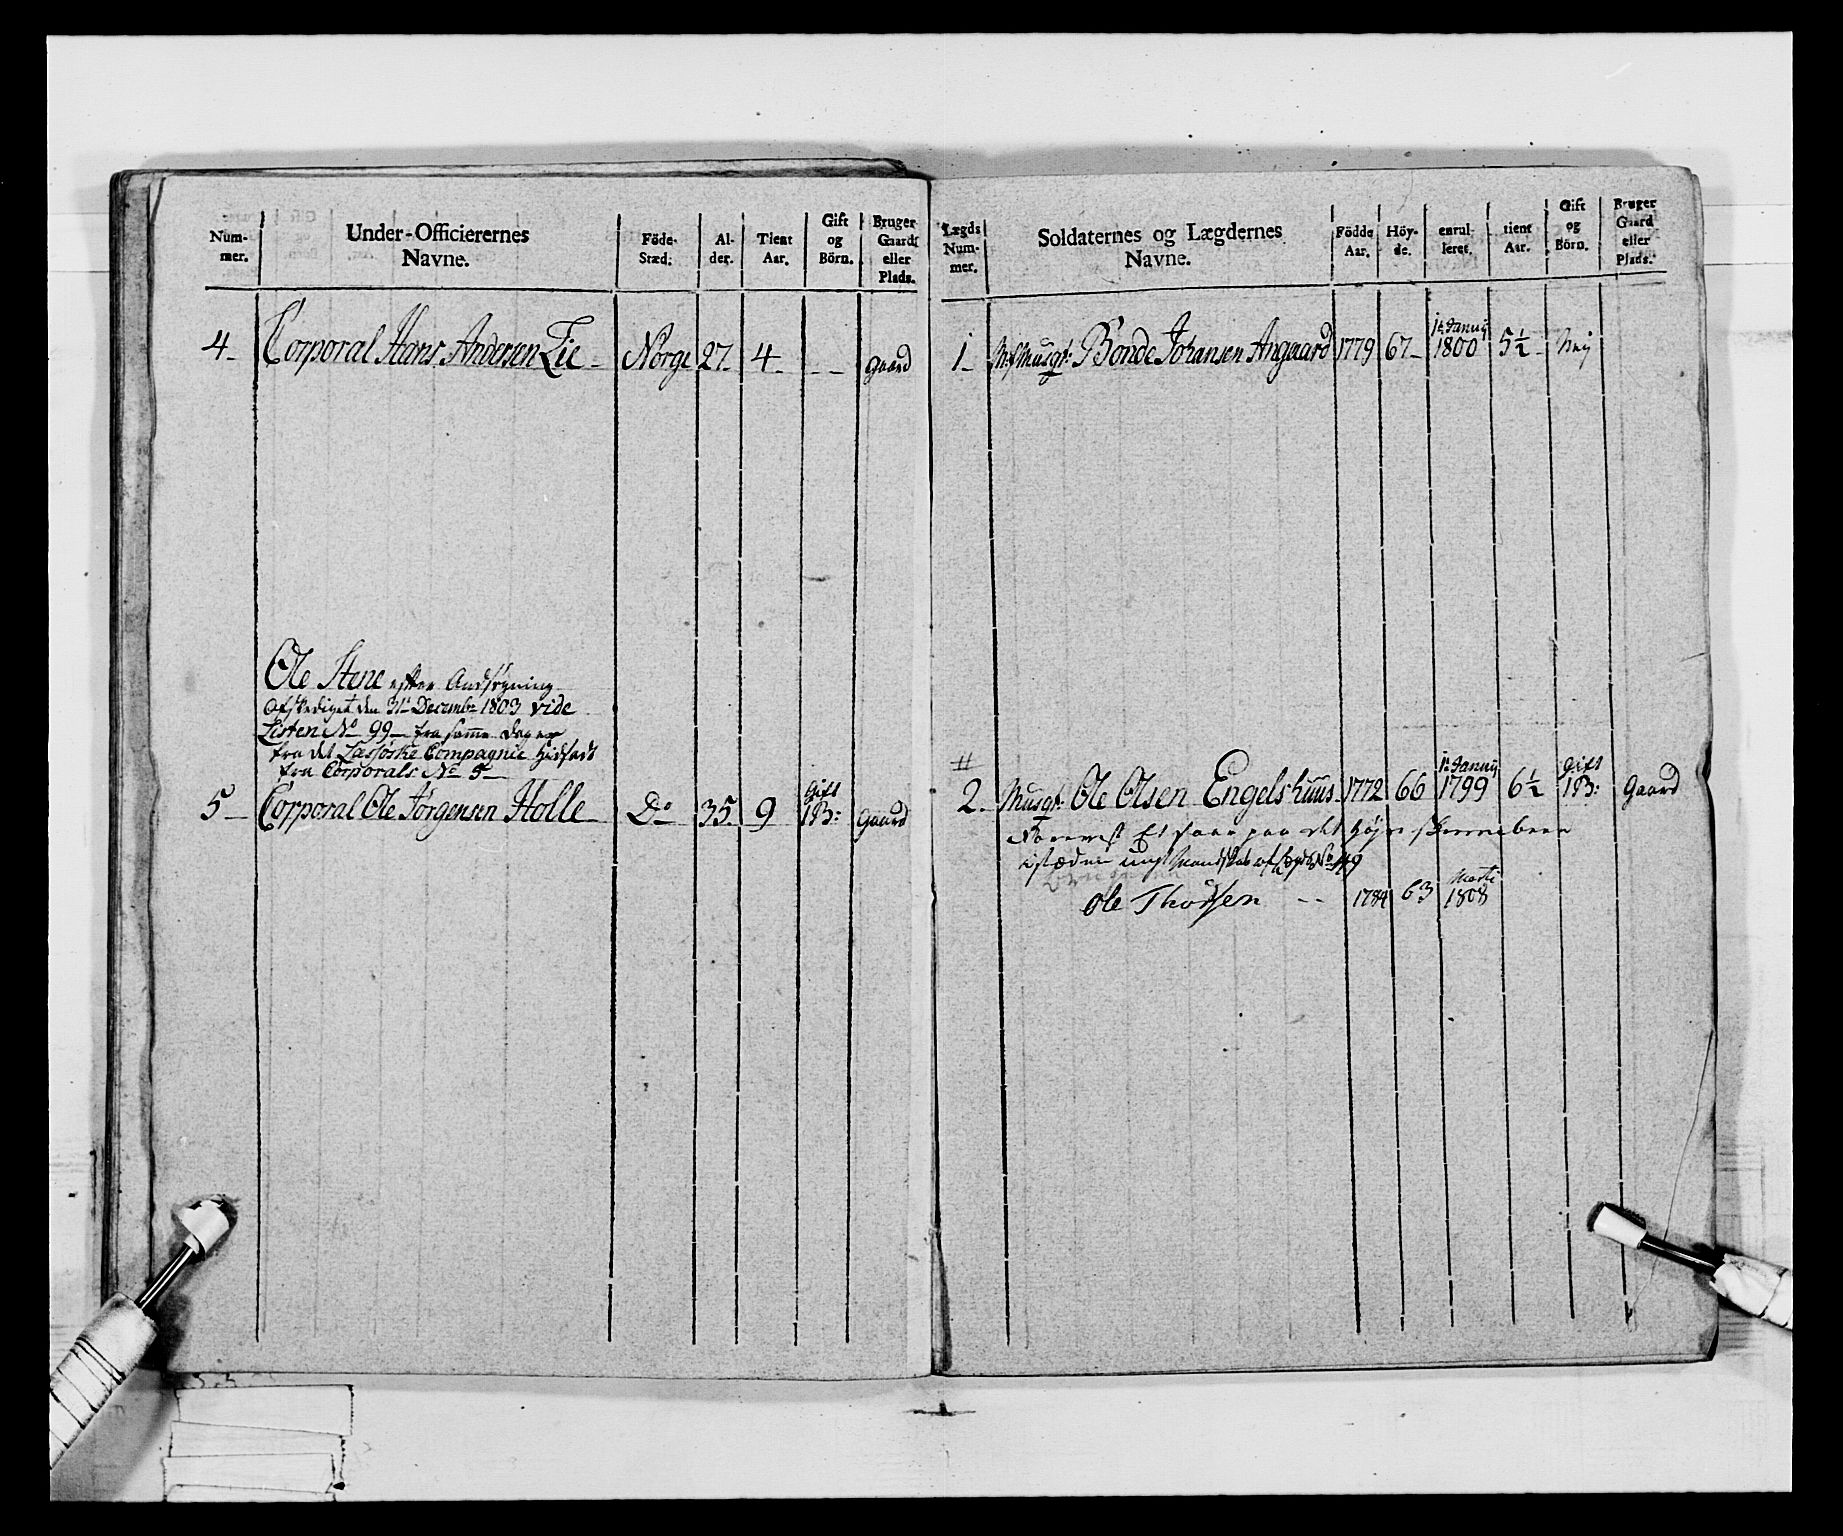 Num-
mer.
Under-Officierernes
Navne.
Föde-
Stæd.
Al-
der.
Tient
Aar.
Gift
og
Börn.
Bruger
Gaard
eller
Plads.
4 Corporal Hans Andersen Lie Norge 27 4 Gaard
Ole Stene efter Andsøgning
afskediget den 31te Decembr 1803 vide
Listen No 99 fra samme Dag er
fra det Lessøske Compagnie hidsadt
fra Corporals No 5
5 Corporal Ole Jørgensen Holle Do 35 9 Gift 1 B: Gaard
Lægds
Num-
mer.
Soldaternes og Lægdernes
Navne.
Födde
Aar.
Höy-
de.
enrul-
leret.
tient
Aar.
Gift
og
Börn.
Bruger
Gaard
eller
Plads.
1 Musqt: Bonde Johansen Angaard 1779 67 1te Januij 1800 5½ Neij
2. Musqt: Ole Olsen Engelshuus 1772 66 1te Januij 1799 6½ Gift 1 B: Gaard
Et paa det høyre
No 119
Ole Thorsen 1784 63 Marti 1808